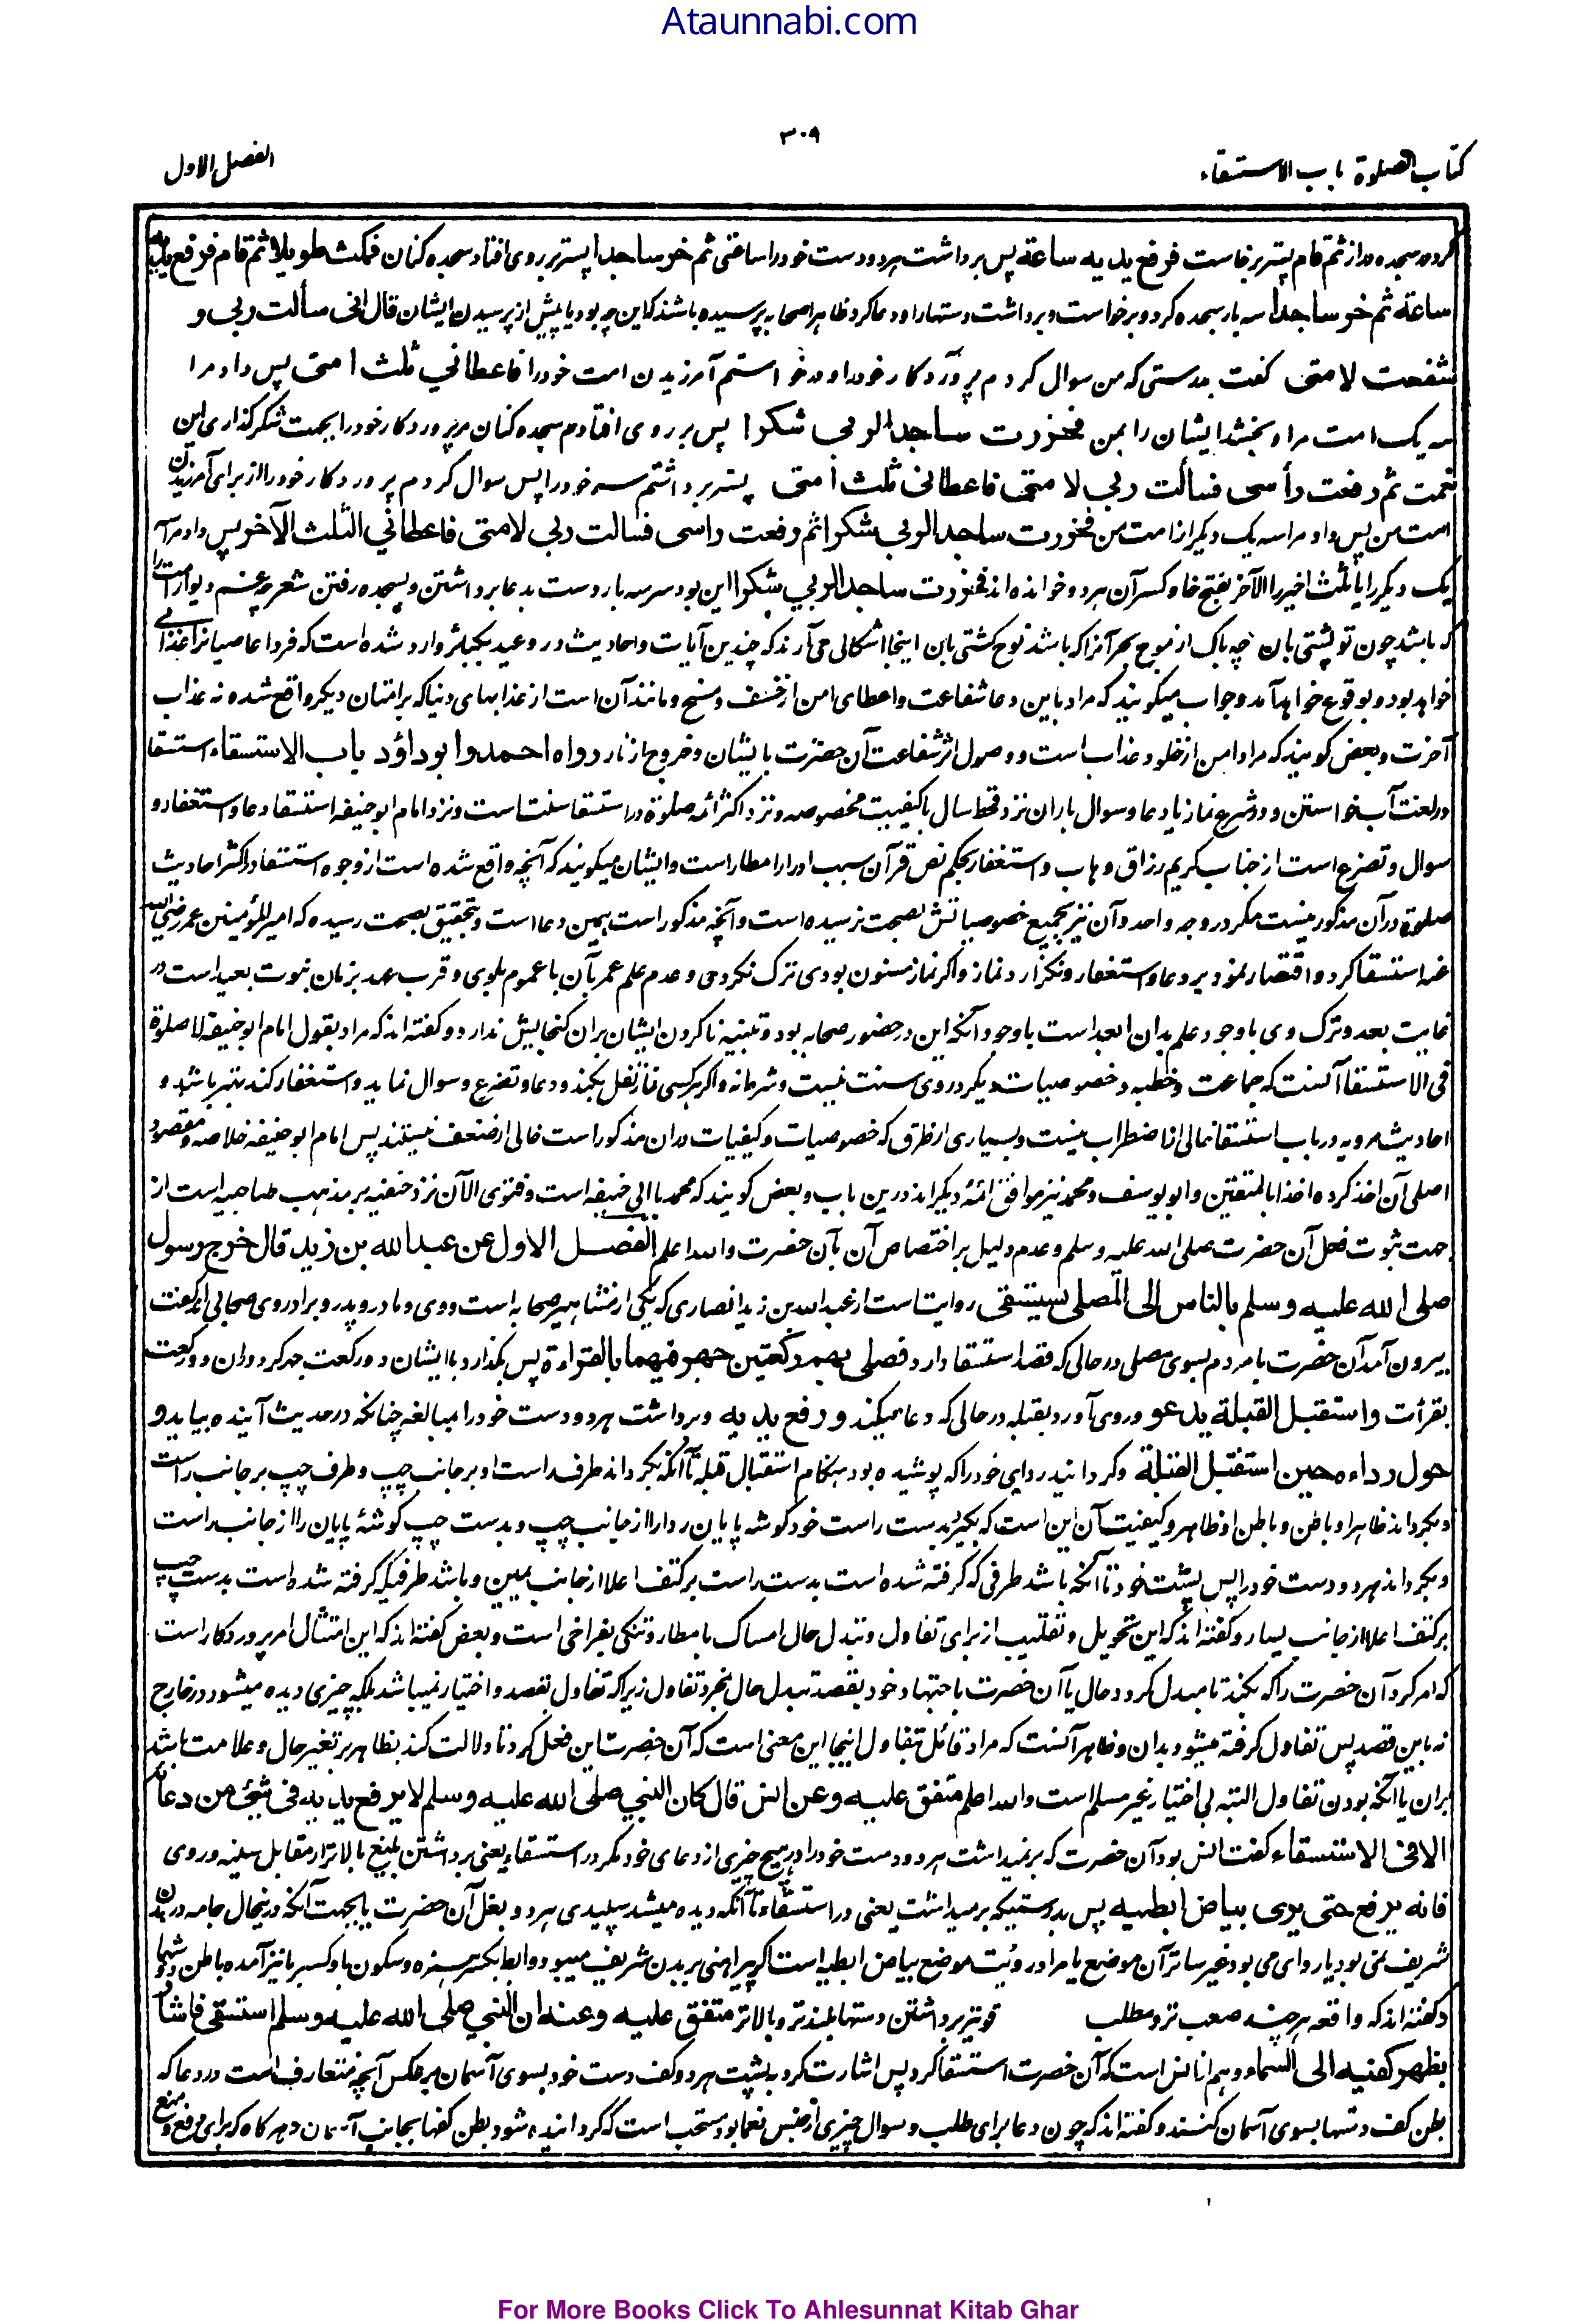 Ataunnabi.com
۳۰۹
کتاب الصلوة باب الاستسقاء
الفصل الاول
کرد در سجده دراز ثم قام پستر برخاست فرفع یدیه ساعة پس برداشت هر دو دست خود را ساعتی ثم خر ساجدا پستر بر روی افتاد سجده کنان فمکث طویلا ثم قام فرفع یدیه
ساعة ثم خر ساجدا سه بار سجده کرد و برخواست و برداشت دستها را و دعا کرد ظاهرا صحابه پرسیده باشند که این چه بود یا پیش از پرسیدن ایشان قال انی سألت ربی و
شفعت لامتی گفت بدرستی که من سوال کردم پروردگار خود را و درخواستم آمرزیدن امت خود را فاعطانی ثلث امتی پس داد مرا
سه یک امت مرا و بخشد ایشان را بمن فخررت ساجدا لربی شکرا پس بر روی افتادم سجده کنان مر پروردگار خود را بجهت شکرگذاری این
نعمت ثم رفعت رأسی فسألت ربی لامتی فاعطانی ثلث امتی پستر برداشتم سر خود را پس سوال کردم پروردگار خود را از برای آمرزیدن
امت من پس داد مرا سه یک دیگر از امت من فخررت ساجدا لربی شکرا ثم رفعت راسی فسالت ربی لامتی فاعطانی الثلث الآخر پس داد مرا سه
یک دیگر را یا ثلث اخیر را الآخر بفتح خا و کسر آن هر دو خوانده اند فخررت ساجدا لربی شکرا این بود سر سه بار دست بدعا برداشتن و بسجده رفتن شعر چه غم دیوار امت را
که باشد چون تو پشتی بان چه باک از موج بحر آنرا که باشد نوح کشتی بان اینجا اشکالی می آرند که چندین آیات و احادیث در وعید بکبائر وارد شده است که فردا عاصیانرا عذابی
خواهد بود و بوقوع خواهد آمد و جواب میگویند که مراد باین دعا شفاعت و اعطای امن از خسف و مسخ و مانند آن است از عذابهای دنیا که بر امتان دیگر واقع شده نه عذاب
آخرت و بعض گویند که مراد امن از خلود عذاب است و وصول اثر شفاعت آن حضرت بایشان و خروج از نار رواه احمد وابوداؤد باب الاستسقاء استسقا
در لغت آب خواستن و در شرع نماز یا دعا و سوال باران نزد قحط سال با کیفیت مخصوصه و نزد اکثر ائمه صلوة در استسقا سنت است و نزد امام ابو حنیفه استسقا دعا و استغفار و
سوال و تضرع است از جناب کریم رزاق وهاب و استغفار بحکم نص قرآن سبب ادرار امطار است و ایشان میگویند که آنچه واقع شده است از وجوه استسقا در اکثر احادیث
صلوة در آن مذکور نیست مگر در وجه واحد و آن نیز بجمیع خصوصیاتش بصحت نرسیده است و آنچه مذکور است همین دعا است و بتحقیق بصحت رسیده که امیرالمؤمنین عمر رضی الله
عنه استسقا کرد و اقتصار نمود بر دعا و استغفار و نگذارد نماز و اگر نماز مسنون بودی ترک نکردی و عدم علم عمر بآن با عموم بلوی و قرب عهد بزمان نبوت بعید است در
غایت بعد و ترک وی با وجود علم بدان ابعد است با وجود آنکه این در حضور صحابه بود و تنبیه ناکردن ایشان بران گنجایش ندارد و گفته اند که مراد بقول امام ابو حنیفه لا صلوة
فی الاستسقا آنست که جماعت و خطبه و خصوصیات دیگر در وی سنت نیست و شرط نه و اگر هر کسی نماز نفل بکند و دعا و تضرع و سوال نماید و استغفار کند بهتر باشد و
احادیث مرویه در باب استسقا خالی از اضطراب نیست و بسیاری از طرق که خصوصیات و کیفیات دران مذکور است خالی از ضعف نیستند پس امام ابو حنیفه خلاصه و مقصود
اصلی آن اخذ کرده اخذا بالمتیقن و ابو یوسف و محمد نیز موافق ائمهٔ دیگر اند درین باب و بعض گویند که محمد با ابی حنیفه است و فتوی الآن نزد حنفیه بر مذهب صاحبیه است از
جهت ثبوت فعل آن حضرت صلی الله علیه وسلم و عدم دلیل بر اختصاص آن بآن حضرت والله اعلم الفصل الاول عن عبدالله بن زید قال خرج رسول
صلی الله علیه وسلم بالناس الی المصلی یستسقی روایت است از عبدالله بن زید انصاری که یکی از مشاهیر صحابه است و وی و مادر و پدر و برادر وی صحابی اند گفت
بیرون آمد آن حضرت با مردم بسوی مصلی در حالی که قصد استسقا دارد فصلی بهم رکعتین جهر فیهما بالقراءة پس بگذارد با ایشان دو رکعت جهر کرد دران دو رکعت
بقرأت واستقبل القبلة یدعو و روی آورد بقبله در حالی که دعا میکند ورفع یدیه و برداشت هر دو دست خود را بمبالغه چنانکه در حدیث آینده بیاید و
حول رداءه حین استقبل القبلة و گردانید ردای خود را که پوشیده بود هنگام استقبال قبله تا آنکه بگرداند طرف راست او بر جانب چپ و طرف چپ بر جانب راست
و بگرداند ظاهر او باطن و باطن او ظاهر و کیفیت آن این است که بگیرد بدست راست خود گوشه پایان ردا را از جانب چپ و بدست چپ گوشهٔ پایان را از جانب راست
و بگرداند هر دو دست خود را پس پشت خود تا آنکه باشد طرفی که گرفته شده است بدست راست بر کتف اعلا از جانب یمین و باشد طرفیکه گرفته شده است بدست چپ
بر کتف اعلا از جانب یسار و گفته اند که این تحویل و تقلیب از برای تفاول و تبدل حال امساک بامطار و تنگی بفراخی است و بعض گفته اند که این امتثال امر پروردگار است
که امر کرد آن حضرت را که بکند تا مبدل گردد حال یا آن حضرت باجتهاد خود بقصد تبدل حال نه بمجرد تفاول زیرا که تفاول بقصد و اختیار نمیباشد بلکه چیزی دیده میشود در خارج
نه باین قصد پس تفاول گرفته میشود بدان و ظاهر آنست که مراد قائل تفاول اینجا این معنی است که آن حضرت این فعل کرد تا دلالت کند بظاهر بر تغیر حال و علامت باشد
بران یا آنکه بودن تفاول البته بی اختیار غیر مسلم است والله اعلم متفق علیه وعن انس قال کان النبی صلی الله علیه وسلم لا یرفع یدیه فی شیء من دعائه
الا فی الاستسقاء گفت انس بود آن حضرت که بر نمیداشت هر دو دست خود را در هیچ چیزی از دعای خود مگر در استسقاء یعنی برداشتن بلیغ بالاتر از مقابل سینه و روی
فانه یرفع حتی یری بیاض ابطیه پس بدرستیکه بر میداشت یعنی در استسقاء تا آنکه دیده میشد سپیدی هر دو بغل آن حضرت یا بجهت آنکه درینحال جامه در بدن
شریف نمی بود یا ردای می بود غیر ساتر آن موضع یا مراد رؤیت موضع بیاض ابطیه است اگر پیراهنی بر بدن شریف میبود و ابط بکسر همزه و سکون با و کسر با نیز آمده باطن دوش
و گفته اند که واقعه هر چند صعب تر و مطلب قوی تر برداشتن دستها بلندتر و بالاتر متفق علیه وعنه ان النبی صلی الله علیه وسلم استسقی فاشار
بظهر کفیه الی السماء و هم از انس است که آن حضرت استسقا کرد پس اشارت کرد به پشت هر دو کف دست خود بسوی آسمان بر عکس آنچه متعارف است در دعا که
بطن کف دستها بسوی آسمان کنند و گفته اند که چون دعا برای طلب و سوال چیزی از جنس نعما بود مستحب است که گردانیده شود بطن کفها بجانب آسمان و هر گاه که برای دفع و منع
For More Books Click To Ahlesunnat Kitab Ghar